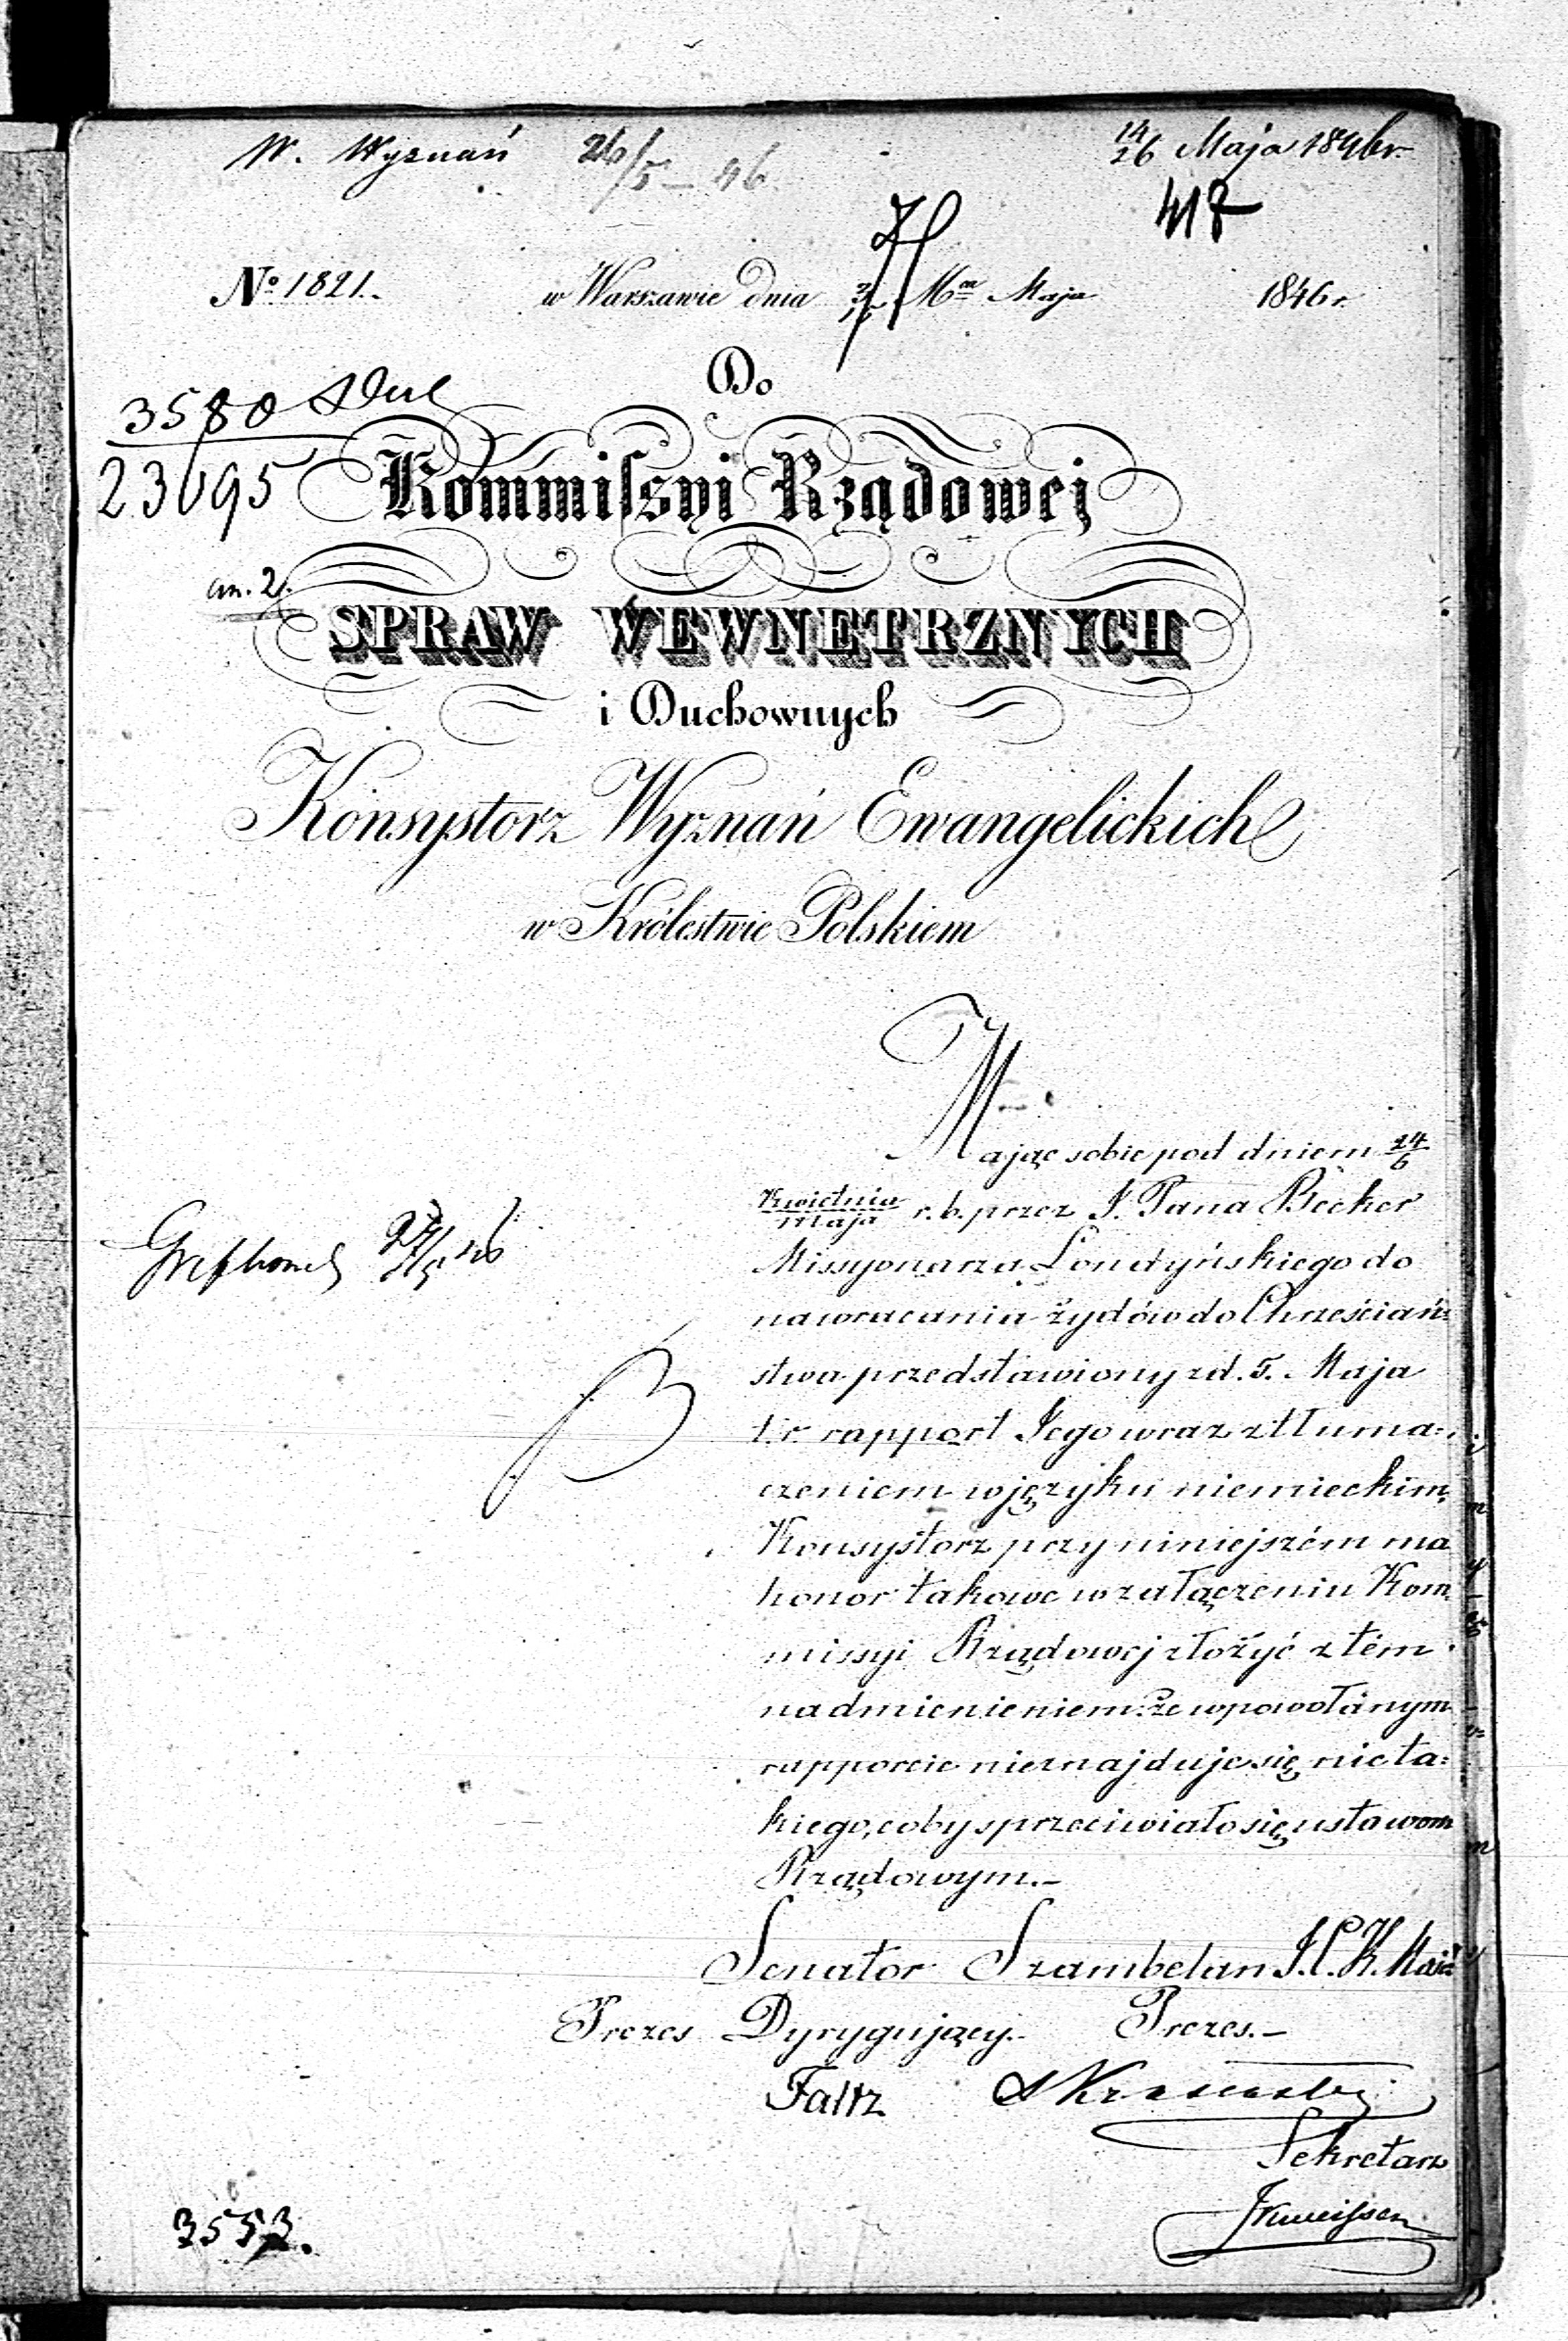 W. Wyznań 26/5 – 46
14/26 Maja 1846 r.
417
No 1821.
w Warszawie dnia Mca Maja 1846 r.
Do
3580
23695
Kommissyi Rządowej
an. 2.
SPRAW WEWNETRZNYCH
i Duchownych
Konsystorz Wyznań Ewangelickich
w Królestwie Polskiem
Mając sobie pod dniem 24/6
Kwietnia/Maja r. b. przez J. Pana Becker
Missyonarza Londyńskiego do
nawracania żydów do Chrześciań=
stwa przedstawiony z d. 5. Maja
t. r. rapport Jego wraz z tłuma=
czeniem w języku niemieckim,
Konsystorz przy niniejszém ma
honor takowe w załączeniu Kom=
missyi Rządowej złożyć z tém
nadmienieniem: że w powołanym
rapporcie nieznajduje się nic ta=
kiego, coby sprzeciwiało się ustawom
Rządowym.–
Senator Szambelan J. C. K. Mości
Prezes Dyrygujący.– Prezes.–
Faltz
Sekretarz
3553.